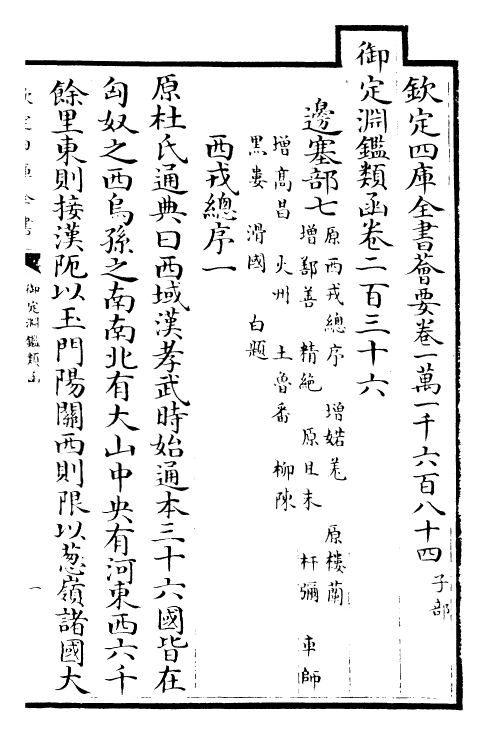 欽定四庫全書薈要卷一萬一千六百八十四 子部
御定淵鑑類函卷二百三十六
邊塞部七 原西戎總序 增婼羌 原樓蘭
增鄯善 精絶 原且末 杅彌 車師
增高昌 火州 土魯番 柳陳
黑婁 滑國 白題
西戎總序一
原杜氏通典曰西域漢孝武時始通本三十六國皆在
匈奴之西烏孫之南南北有大山中央有河東西六千
餘里東則接漢阨以玉門陽關西則限以葱嶺諸國大
欽定四庫全書
御定淵鑑類函
一